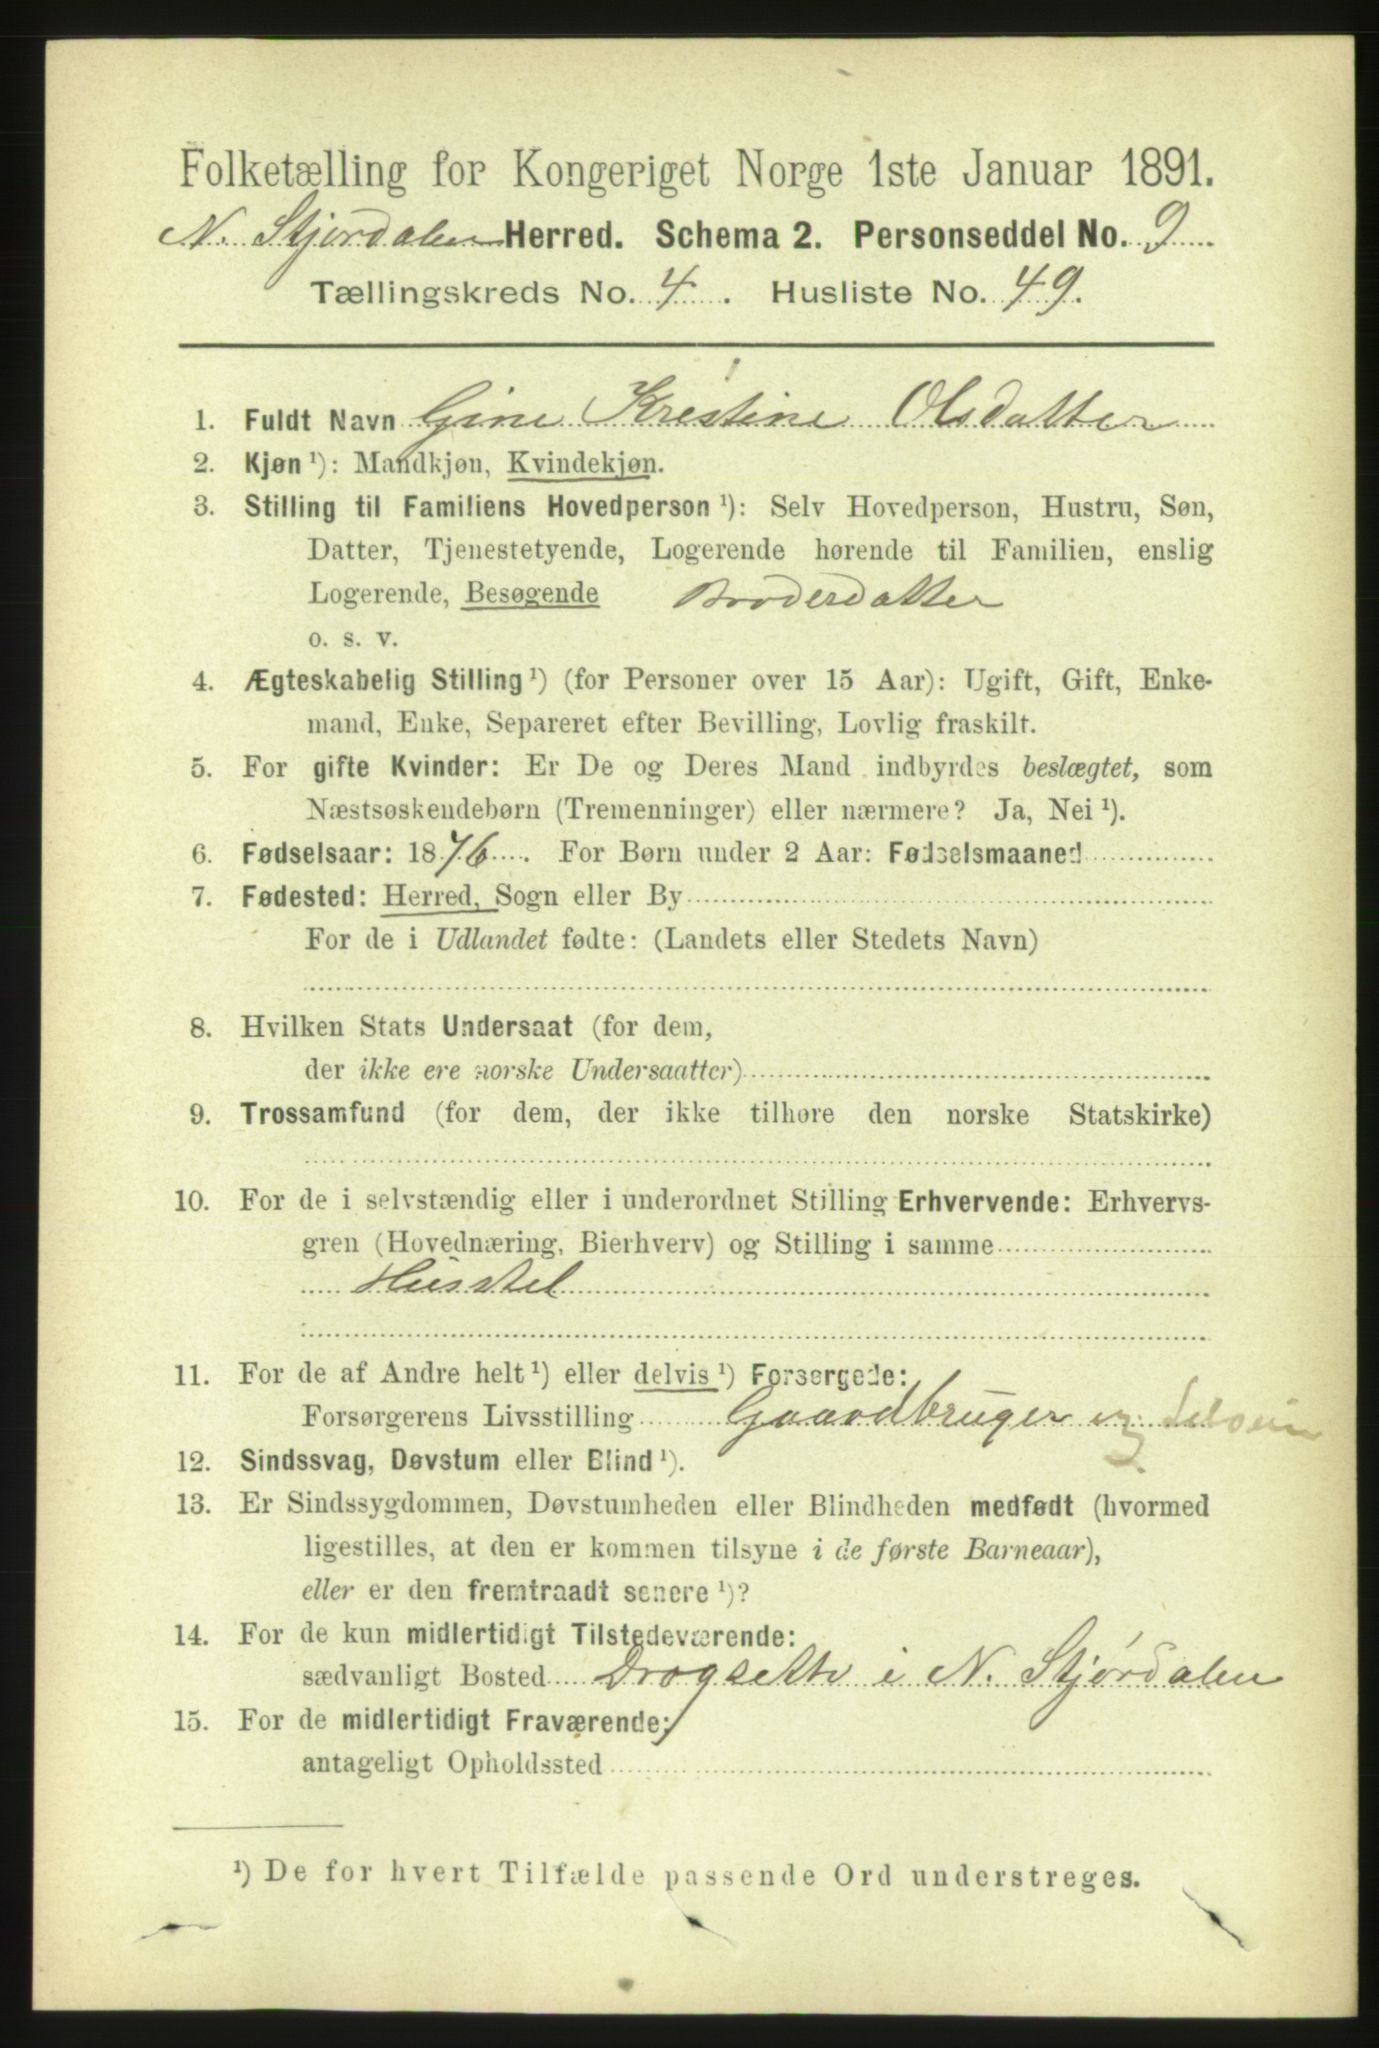 Folketælling for Kongeriget Norge 1ste Januar 1891.
N. Stjørdalen Herred. Schema 2. Personseddel No. 9
Tællingskreds No. 4. Husliste No. 49.
1. Fuldt Navn Gine Krestine Olsdatter
2. Kjøn ¹): Mandkjøn, Kvindekjøn.
3. Stilling til Familiens Hovedperson ¹): Selv Hovedperson, Hustru, Søn,
Datter, Tjenestetyende, Logerende hørende til Familien, enslig
Logerende, Besøgende Broderdatter
o. s. v.
4. Ægteskabelig Stilling ¹) (for Personer over 15 Aar): Ugift, Gift, Enke-
mand, Enke, Separeret efter Bevilling, Lovlig fraskilt.
5. For gifte Kvinder: Er De og Deres Mand indbyrdes beslægtet, som
Næstsøskendebørn (Tremenninger) eller nærmere? Ja, Nei ¹).
6. Fødselsaar: 1876. For Børn under 2 Aar: Fødselsmaaned
7. Fødested: Herred, Sogn eller By
For de i Udlandet fødte: (Landets eller Stedets Navn)
8. Hvilken Stats Undersaat (for dem,
der ikke ere norske Undersaatter)
9. Trossamfund (for dem, der ikke tilhøre den norske Statskirke)
10. For de i selvstændig eller i underordnet Stilling Erhvervende: Erhvervs-
gren (Hovednæring, Bierhverv) og Stilling i samme
Husstel
11. For de af Andre helt ¹) eller delvis ¹) Forsørgede:
Forsørgerens Livsstilling Gaardbruger og Selveier
12. Sindssvag, Døvstum eller Blind ¹).
13. Er Sindssygdommen, Døvstumheden eller Blindheden medfødt (hvormed
ligestilles, at den er kommen tilsyne i de første Barneaar),
eller er den fremtraadt senere ¹)?
14. For de kun midlertidigt Tilstedeværende:
sædvanligt Bosted Drogsetti i N. Stjørdalen
15. For de midlertidigt Fraværende:
antageligt Opholdssted
¹) De for hvert Tilfælde passende Ord understreges.